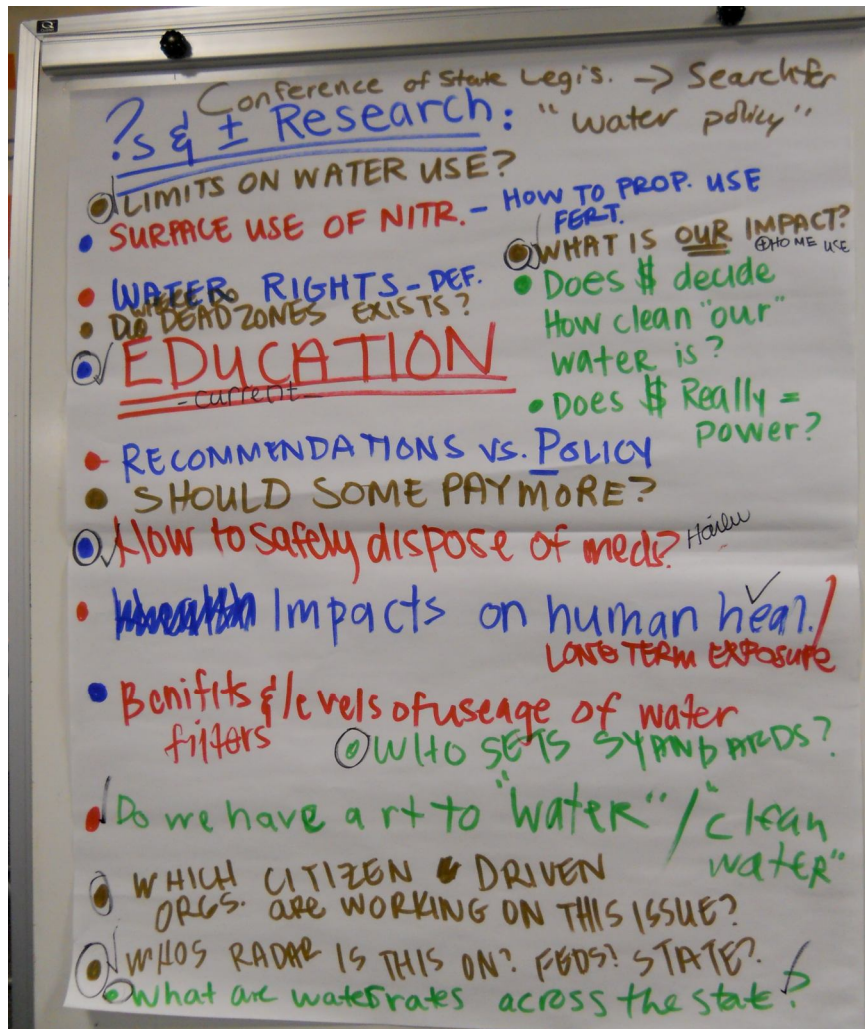 Conference of State Legis. -> Search for
"water policy"
?s & ± Research:
LIMITS ON WATER USE?
SURFACE USE OF NITR. - HOW TO PROP. USE
FERT.
WHAT IS OUR IMPACT?
⊕HOME USE
WATER RIGHTS - DEF.
WHERE DO
DEAD ZONES EXISTS?
Does $ decide
How clean "our"
water is?
Does $ Really =
power?
EDUCATION
- current -
RECOMMENDATIONS VS. POLICY
SHOULD SOME PAY MORE?
How to safely dispose of meds?
Impacts on human heal./
LONG TERM EXPOSURE
Benifits & levels of useage of water
filters
WHO SETS SYANDARDS?
Do we have a rt to "water" / "clean
water"
WHICH CITIZEN DRIVEN
ORGS. are WORKING ON THIS ISSUE?
WHOS RADAR IS THIS ON? FEDS? STATE?
What are water rates across the state?